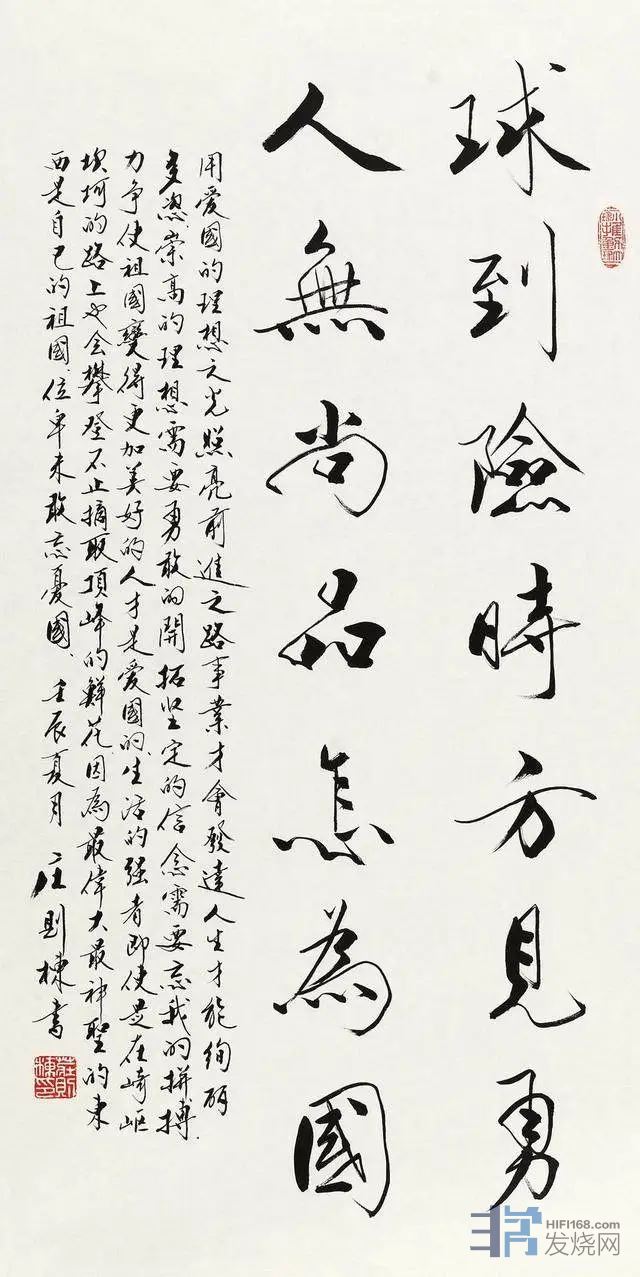 球到險時方見勇
人無尚品怎為國
用爱國的理想之光照亮前進之路事業才會發達人生才能絢丽
多姿.崇高的理想需要勇敢的開拓坚定的信念需要忘我的拼搏.
力争使祖國變得更加美好的人才是爱國的.生活的强者即使是在崎岖
坎坷的路上也会攀登不止摘取頂峰的鲜花.因為最偉大最神聖的东
西是自己的祖國.位卑未敢忘憂國. 壬辰夏月 庄則棟書
莊則棟印
HIFI168.com
发烧网